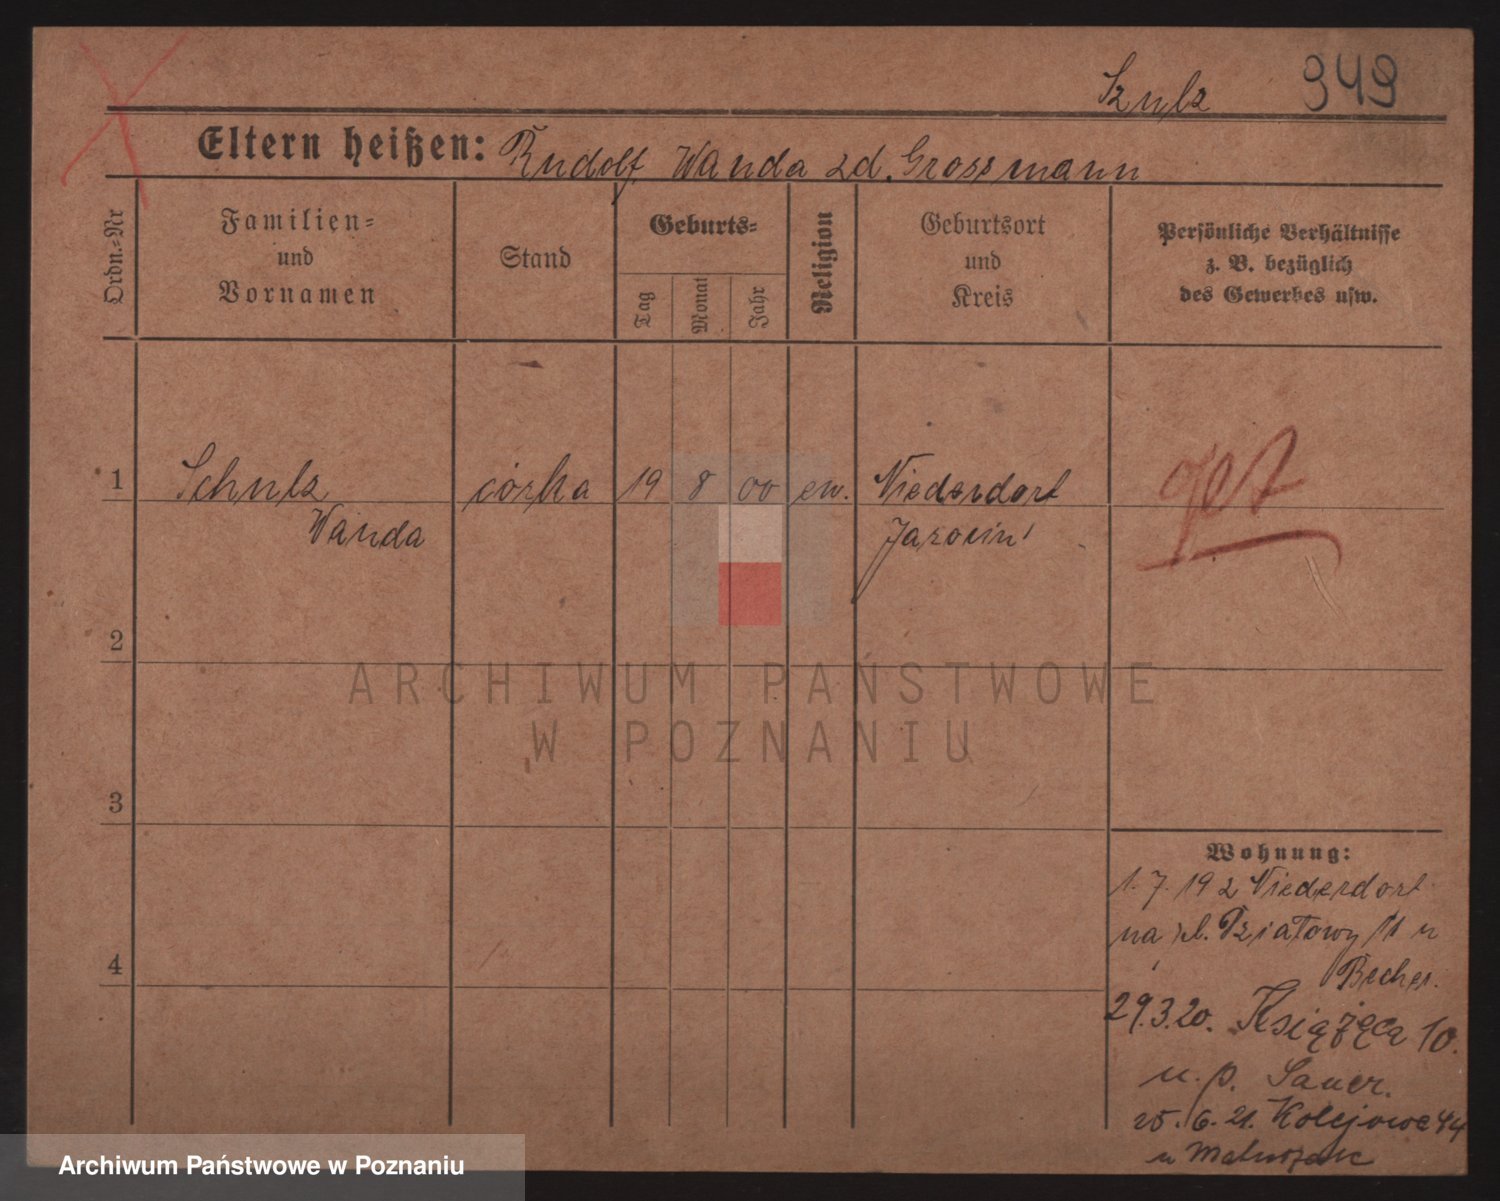 Szulz 949
Eltern heißen: Rudolf Wanda zd. Grossmann
Ordn.=Nr
Familien=
und
Vornamen
Stand
Geburts=
Tag
Monat
Jahr
Religion
Geburtsort
und
Kreis
Persönliche Verhältnisse
z. B. bezüglich
des Gewerbes usw.
1 Schulz córka 19 8 00 ew. Niederdorf
Wanda Jarocin
2
3
4
ARCHIWUM PAŃSTWOWE
W POZNANIU
Wohnung:
1. 7. 19 z Niederdorf
na pl. Działowy 11 u
Becher.
29.3.20. Książęca 10.
u. p. Sauer.
25. 6. 21. Kolejowa 44
u
Archiwum Państwowe w Poznaniu